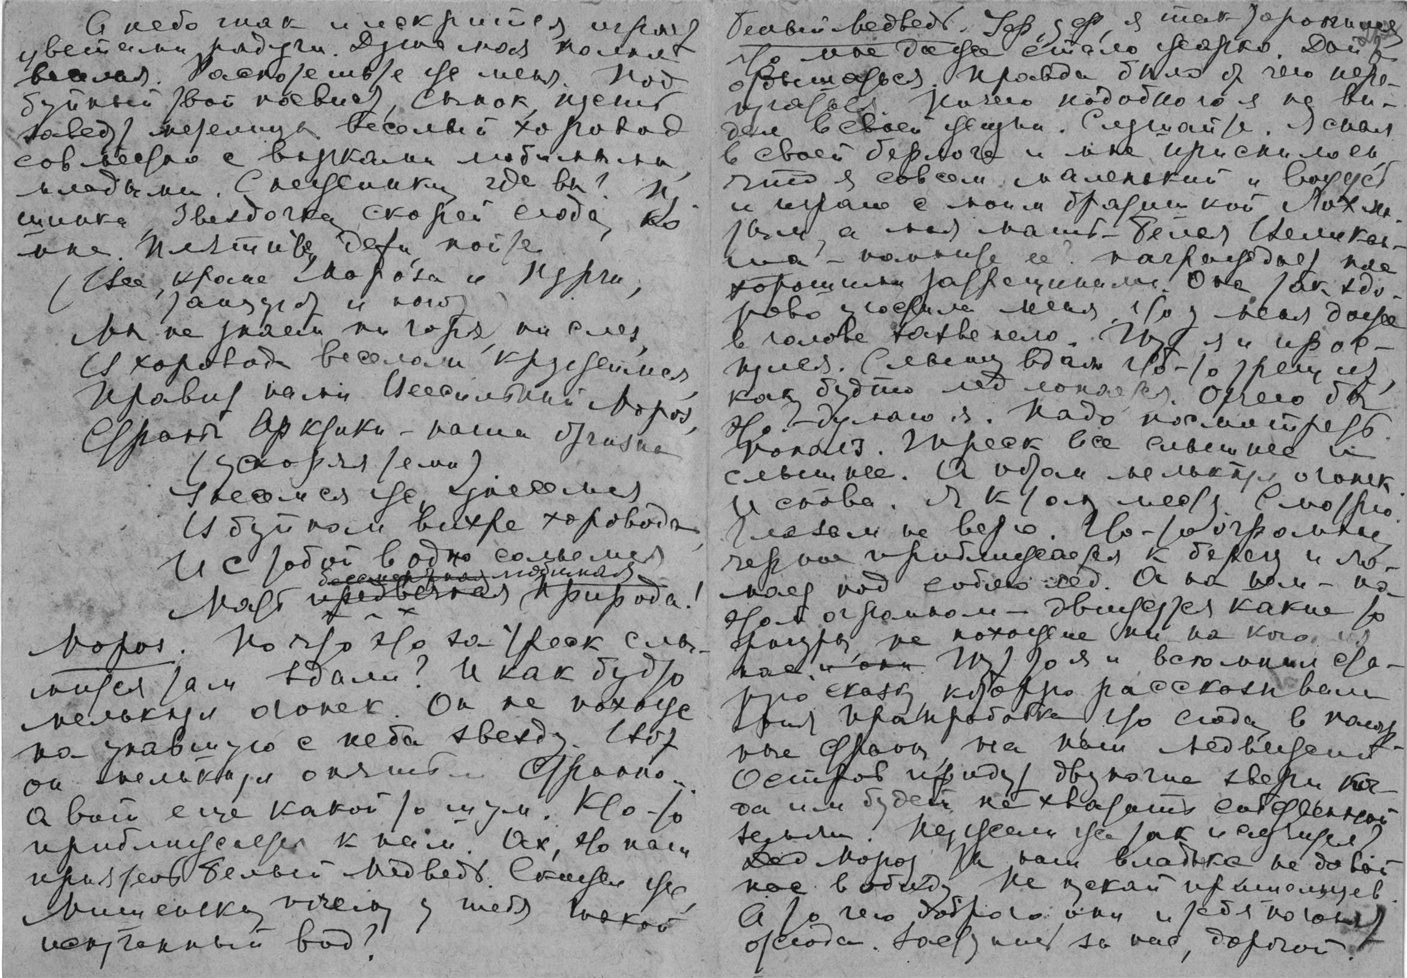 А небо так и искрится, играя
цветами радуги. Душа моя полна
веселья. Распотешьте же меня. Под
буйный твой посвист, сынок, пусть
заведут метелицы веселый хоровод
совместно с внучками любимыми,
младыми. Снежинки, где вы?
Звездочка, скорей сюда, ко
мне. Пляшите, дети, пойте
(Все, кроме Мороза и Пурги,
танцуют и поют)
Мы не знаем ни горя, ни слез,
В хороводе веселом кружимся,
Правит нами Всесильный Мороз,
Страна Арктики – наша отчизна
(ускоряя темп)
Унесемся же, унесемся
В буйном вихре хоровода,
И с тобой в одно сольемся
любимая
Мать предвечная Природа!
Мороз. Но что это за треск слы-
шится там вдали? И как будто
мелькнул огонек. Он не похож
на упавшую с неба звезду. Вот
он мелькнул опять. Странно..
А вот еще какой то шум. Кто-то
приближается к нам. Ах, это наш
приятель Белый Медведь. Скажи же,
Мишенька, почему у тебя такой
испуганный вид?
Белый Медведь. Уф, уф, я так торопился
что мне даже стало жарко. Дай
отдышаться. Правда было от чего пере-
пугаться. Ничего подобного я не ви-
дел в своей жизни. Слушайте. Я спал
в своей берлоге и мне приснилось,
что я совсем маленький и
и играю с моим братишкой Лохма-
тым, а моя мать – Белая Велика́н-
ша – помнишь ее? награждает нас
хорошими затрещинами. Она так здо-
рово угостила меня, что у меня даже
в голове зазвенело. Тут я и прос-
нулся. Слышу вдали что-то трещит,
как будто лед ломается. Отчего бы
это – думаю я. Надо посмотреть.
Пополз. Треск все слышнее и
слышнее. А потом мелькнул огонек.
И снова. Я к тому месту. Смотрю.
Глазам не верю. Что-то огромное
черное приближается к берегу и ло-
мает под собою лед. А на нем – на
этом огромном – движутся какие то
фигуры, не похожие ни на кого из
нас и они Тут то я и вспомнил ста-
рую сказку, которую рассказывала
моя прапрабабка что сюда в наши
страны, на наш Медвежий
Остров придут двуногие звери ког-
да им будет не хватать собственной
земли. Неужели же так и случится?
Дед Мороз, ты наш владыка не давай
нас в обиду. Не пускай пришельцев.
А то чего доброго они и тебя погонят
отсюда. Заступись за нас, дорогой.